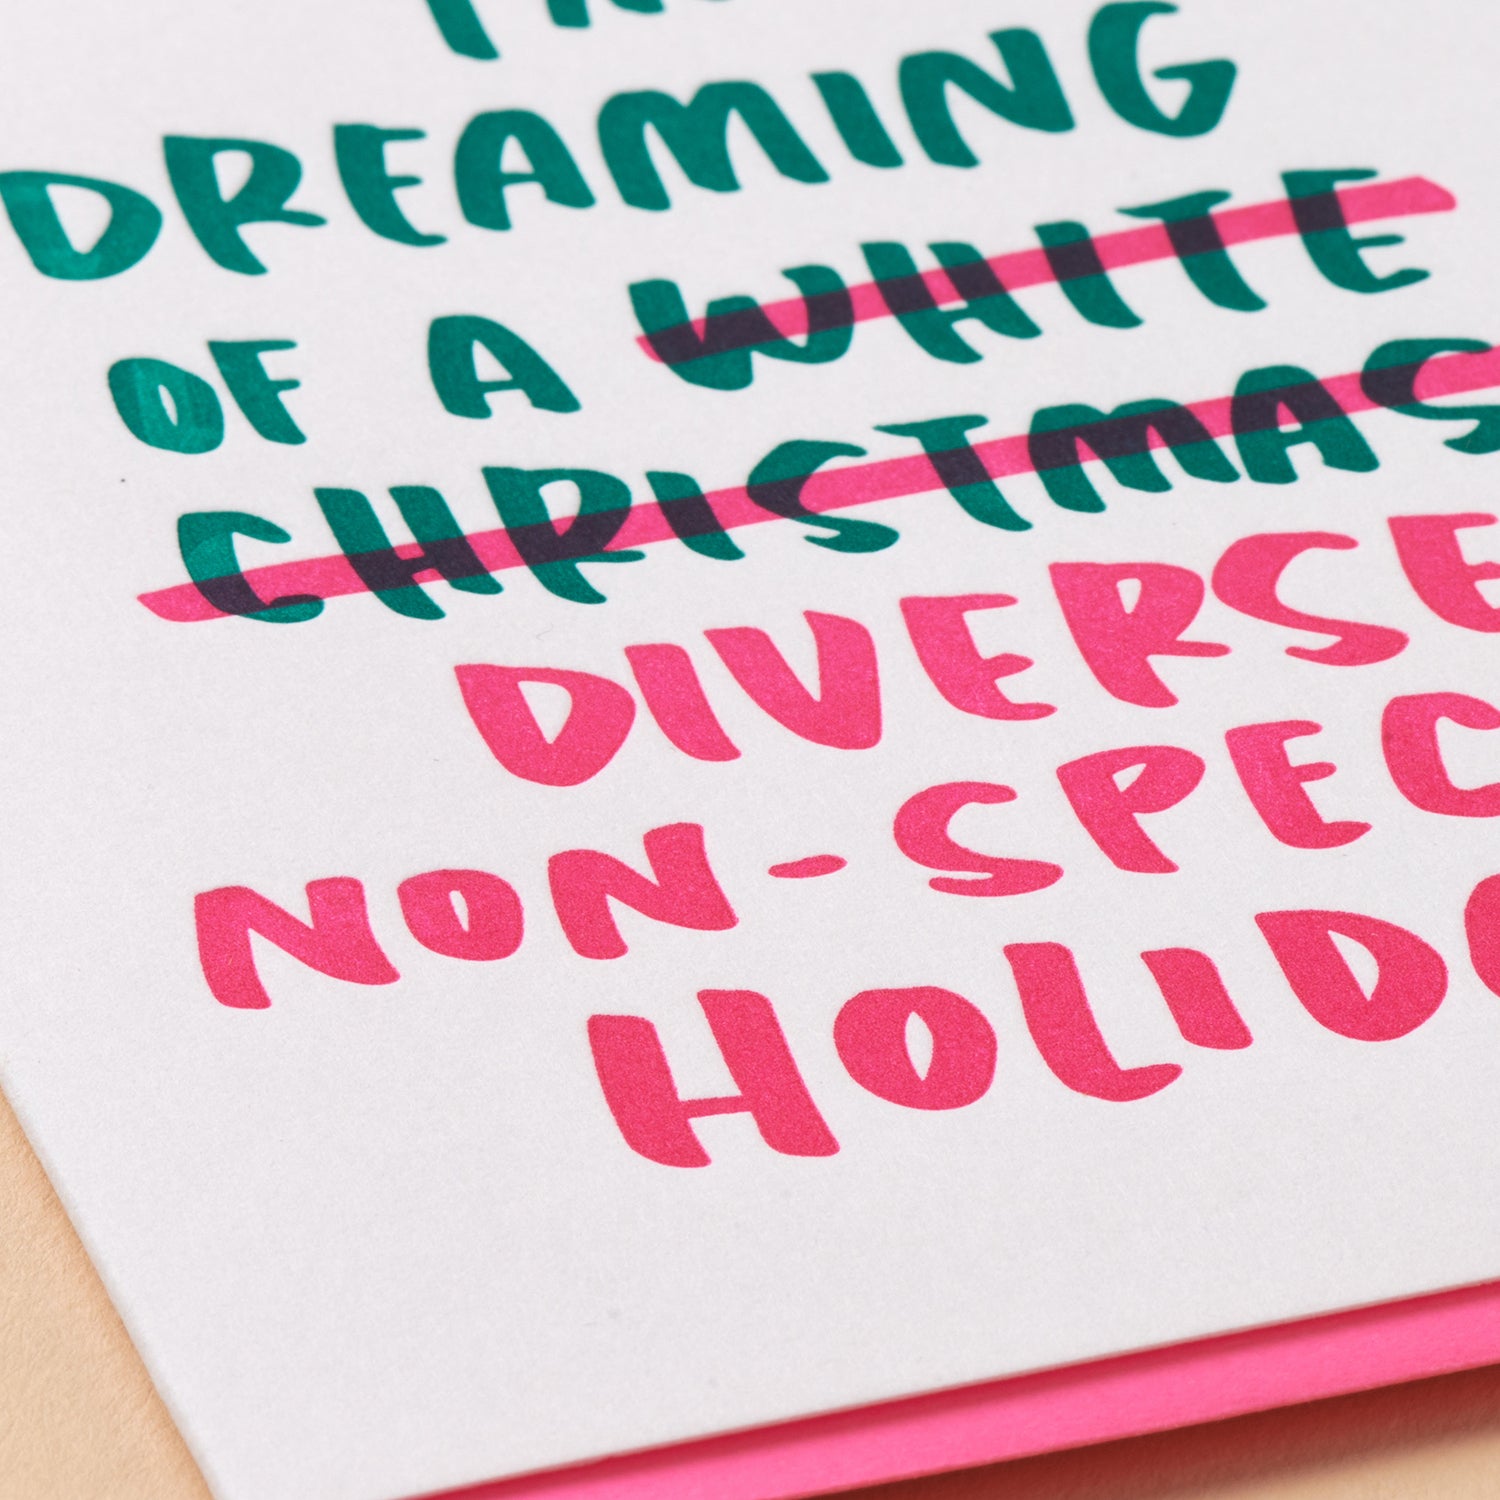 DREAMING
OF A WHITE
CHRISTMAS
DIVERSE
NON-SPEC
HOLID